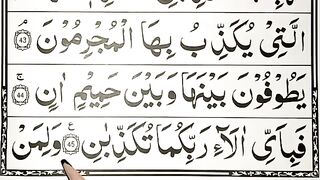 الَّتِیْ یُكَذِّبُ بِهَا الْمُجْرِمُوْنَ ۘ 43
یَطُوْفُوْنَ بَیْنَهَا وَبَیْنَ حَمِیْمٍ اٰنٍ ۚ 44
فَبِاَیِّ اٰلَآءِ رَبِّكُمَا تُكَذِّبٰنِ ع 45 وَلِمَنْ